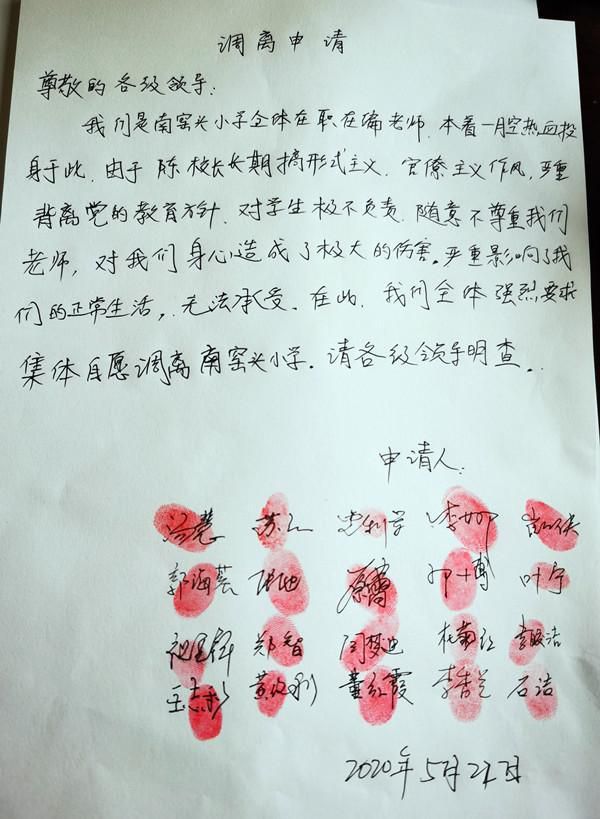 调离申请
尊敬的各级领导：
我们是南窑头小学全体在职在编老师．本着一腔热血投
身于此．由于陈校长长期搞形式主义．官僚主义作风，严重
背离党的教育方针．对学生极不负责．随意不尊重我们
老师，对我们身心造成了极大的伤害。严重影响了我
们的正常生活，无法承受．在此．我们全体强烈要求
集体自愿调离南窑头小学．请各级领导明查．
申请人：
郭海芸 叶宁
郑智 闫梦迪
董红霞 李香兰 石洁
2020年5月22日